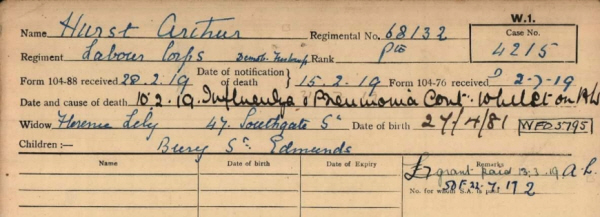 W.1.
Name Hurst Arthur Regimental No. 68132 Case No.
Regiment Labour Corps Rank Pte 4215
Form 104-88 received 28.2.19 Date of notification of death } 15.2.19 Form 104-76 received 2-7-19
Date and cause of death 10.2.19. Influenza & Pneumonia Cont. Whilst on
Widow Florence Lily 47. Southgate St Date of birth 27/4/81 WFO 5795
Children :— Bury St. Edmunds
Name Date of birth Date of Expiry Remarks
grant paid 13.3.19 A.L.
No. for whom S.A. is paid